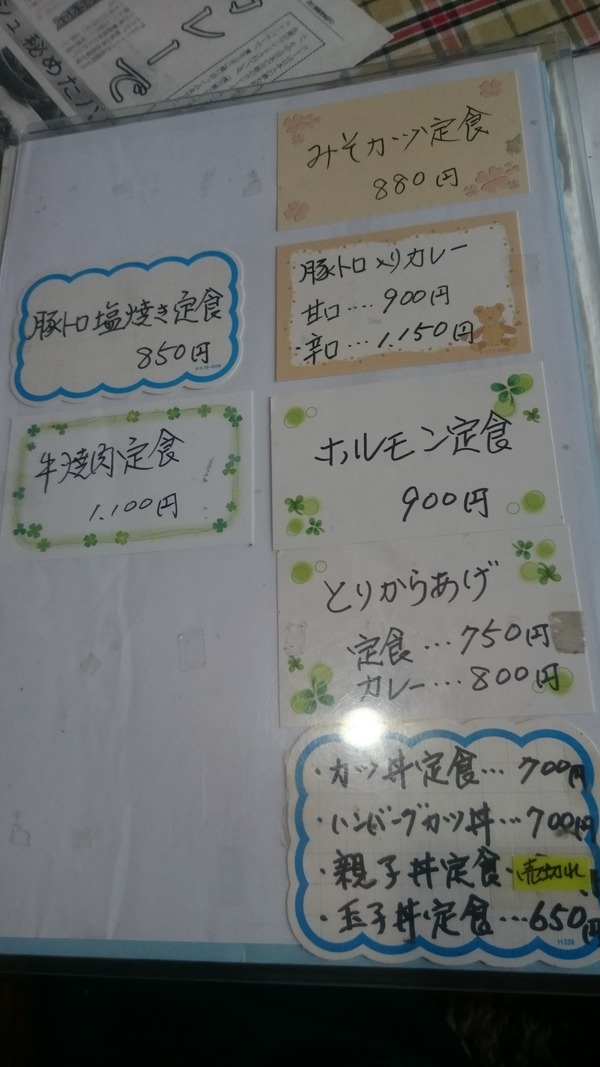 カレーで
シュ秘めたパ
みそカツ定食
880円
豚トロ入りカレー
甘口…900円
・辛口…1.150円
豚トロ塩焼き定食
850円
牛焼肉定食
1.100円
ホルモン定食
900円
とりからあげ
定食…750円
カレー…800円
・カツ丼定食…700円
・ハンバーグカツ丼…700円
・親子丼定食・売切れ
・玉子丼定食…650円